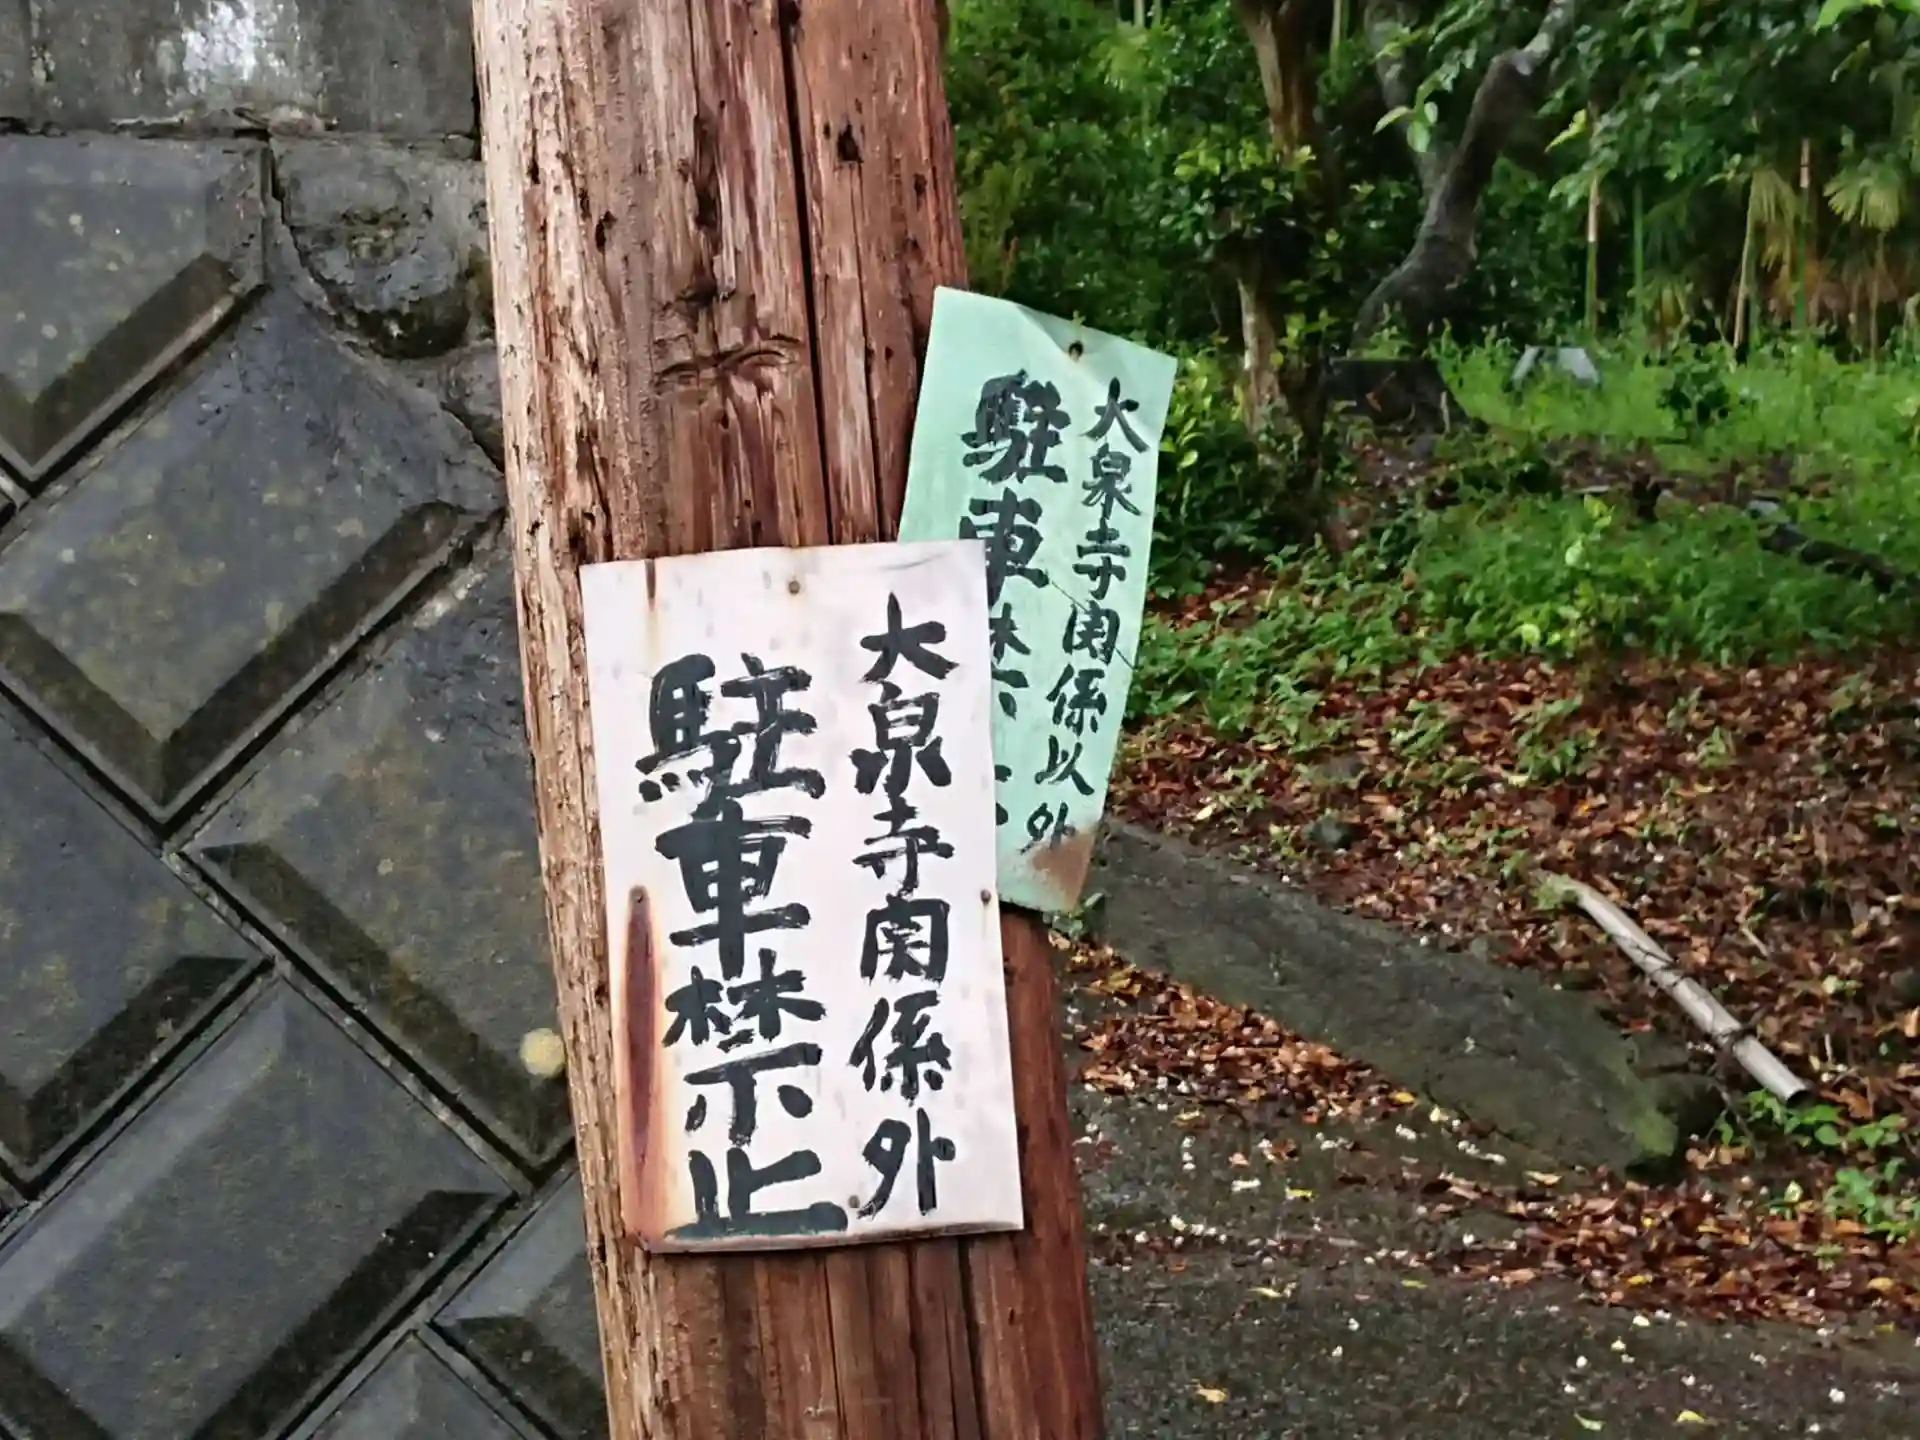 大泉寺関係外
駐車禁止
大泉寺関係以外
駐車禁